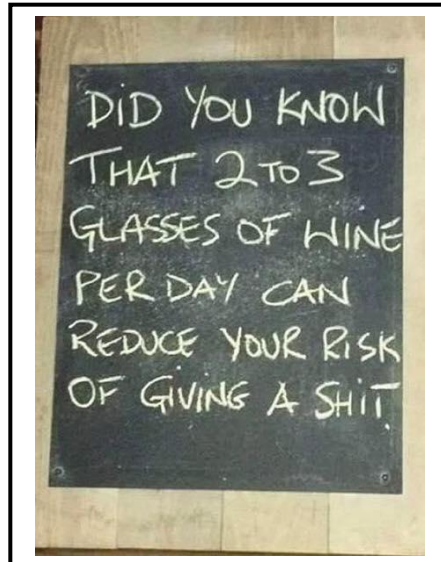 DiD YOU KNOW
THAT 2 TO 3
GLASSES OF WINE
PER DAY CAN
REDUCE YOUR RiSK
OF GiViNG A SHiT